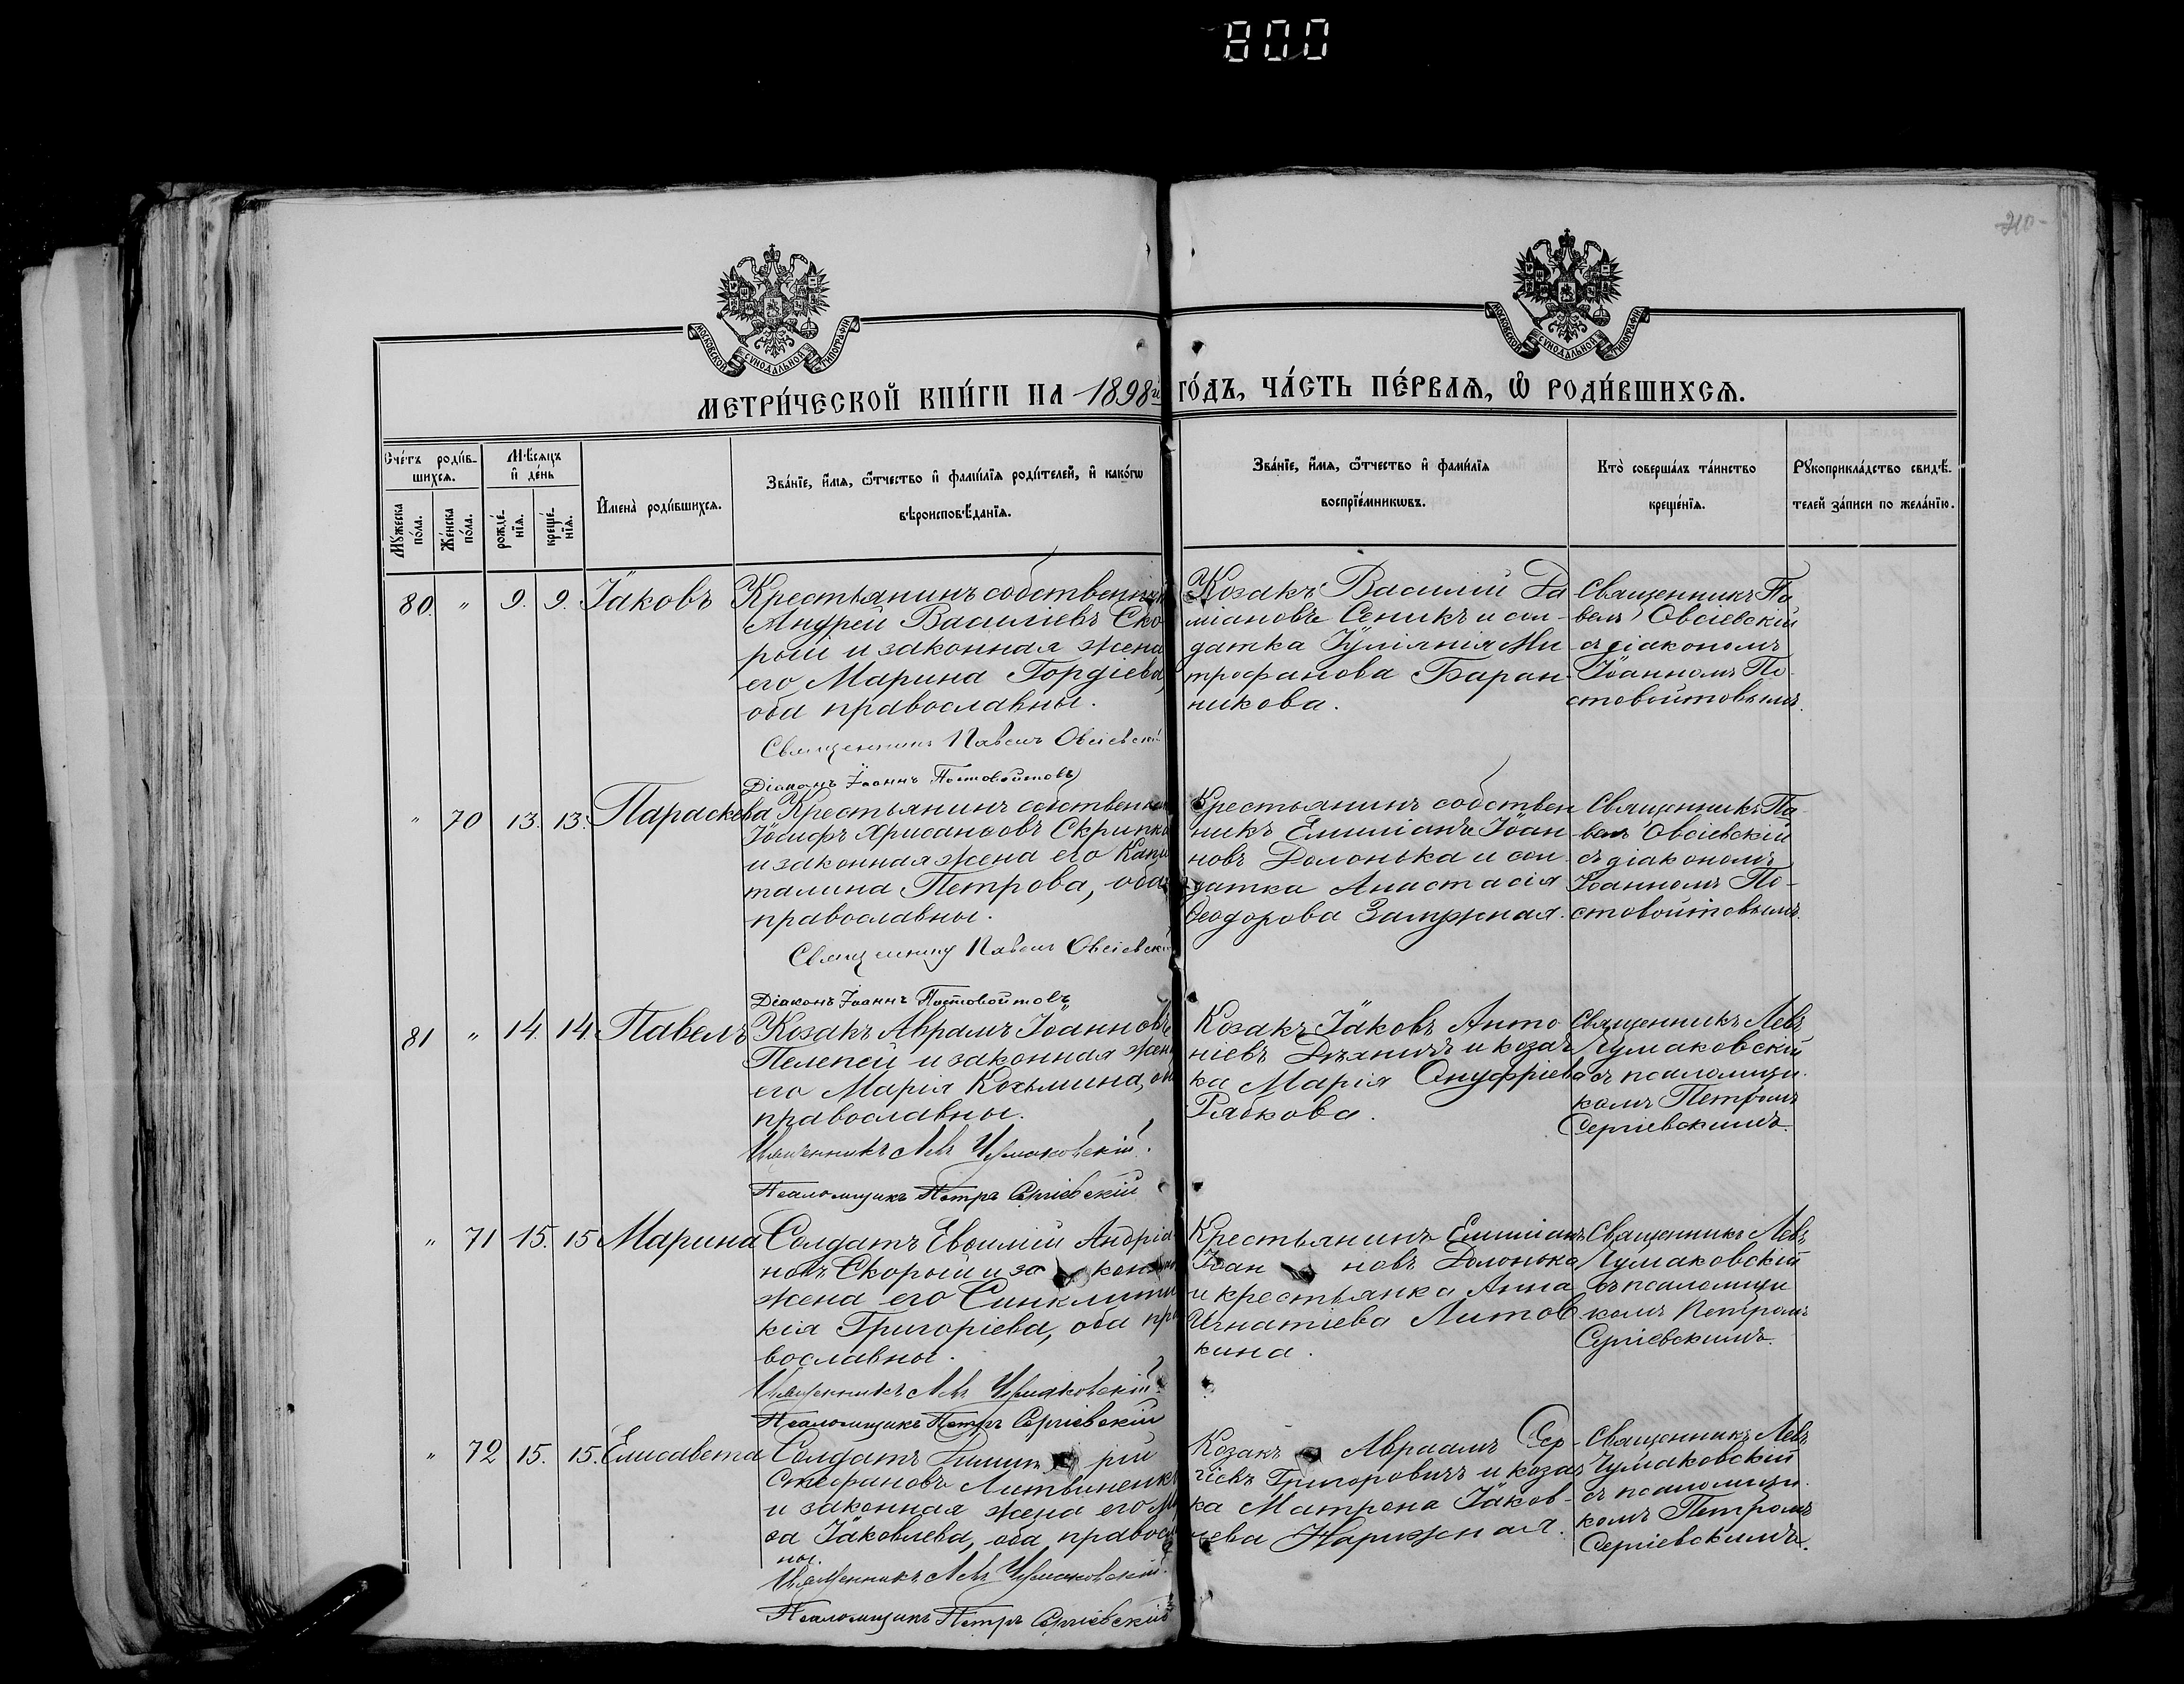 800
210
МОСКОВСКОЙ СУНОДАЛЬНОЙ ТИПОГРАФІИ
МОСКОВСКОЙ СУНОДАЛЬНОЙ ТИПОГРАФІИ
МЕТРИ́ЧЕСКОЙ КНИ́ГИ НА 1898й ГО́ДЪ, ЧА́СТЬ ПЕ́РВАѦ, Ѡ҆ РОДИ́ВШИХСѦ.
Сче́тъ роди́в-
шихсѧ.
Мꙋ́жеска по́ла.
Же́нска по́ла.
Мѣ́сѧцъ
и҆ де́нь
рожде́-
нїѧ.
креще́-
нїѧ.
И҆мена̀ роди́вшихсѧ.
Зва́нїе, и҆́мѧ, ѻ҆́тчество и҆ фами́лїѧ роди́телей, и҆ како́гѡ
вѣроисповѣ́данїѧ.
Зва́нїе, и҆́мѧ, ѻ҆́тчество и҆ фами́лїѧ
воспрїе́мникѡвъ.
Кто̀ соверша́лъ та́инство
креще́нїѧ.
Рꙋкоприкла́дство свидѣ́-
телей за́писи по жела́нїю.
80. " 9. 9. Іаковъ
Крестьянинъ собственникъ
Андрей Василіевъ Ско
рый и законная жена
его Марина Гордіева,
оба православны.
Священникъ Павелъ Овсіевскій
Діаконъ Іоаннъ Постовойтовъ
Козакъ Василій Да
міановъ Сеникъ и сол-
датка Іуліанія Ми
трофанова Баран-
никова.
Священникъ Па
велъ Овсіевскій
съ діакономъ
Іоанномъ По-
стовойтовымъ.
" 70 13. 13. Параскева
Крестьянинъ собственникъ
Іосифъ Хрисанѳовъ Скрипка
и законная жена его Капи
талина Петрова, оба
православны.
Священникъ Павелъ Овсіевскій
Діаконъ Іоаннъ Постовойтовъ
Крестьянинъ собствен
никъ Емиліанъ Іоан
новъ Долонька и сол-
датка Анастасія
Ѳеодорова
Священникъ Па
велъ Овсіевскій
съ діакономъ
Іоанномъ По-
стовойтовымъ.
81 " 14. 14. Павелъ
Козакъ Аврамъ Іоанновъ
Пелепей и законная жена
его Марія Козьмина, оба
православны.
Священникъ Левъ Чумаковскій.
Псаломщикъ Петръ Сергіевскій
Козакъ Іаковъ Анто
ніевъ и козач
ка Марія Онуфріева
Рябкова.
Священникъ Левъ
Чумаковскій
съ псаломщи
комъ Петромъ
Сергіевскимъ.
" 71 15. 15 Марина
Солдатъ Евѳимій Андріа
новъ Скорый и законная
жена его Синклити
кія Григоріева, оба пра
вославны.
Священникъ Левъ Чумаковскій.
Псаломщикъ Петръ Сергіевскій
Крестьянинъ Емиліанъ
Іоанновъ Долонька
и крестьянка Анна
Игнатіева Литов
кина.
Священникъ Левъ
Чумаковскій
съ псаломщи
комъ Петромъ
Сергіевскимъ.
" 72 15. 15. Елисавета
Солдатъ
Стефановъ Литвиненко
и законная жена его
Іаковлева, оба правосл
ны.
Священникъ Левъ Чумаковскій.
Псаломщикъ Петръ Сергіевскій
Козакъ Авраамъ Сер-
гіевъ Григоровичъ и козач
ка Матрона Іаков-
лева Нарижная.
Священникъ Левъ
Чумаковскій
съ псаломщи
комъ Петромъ
Сергіевскимъ.